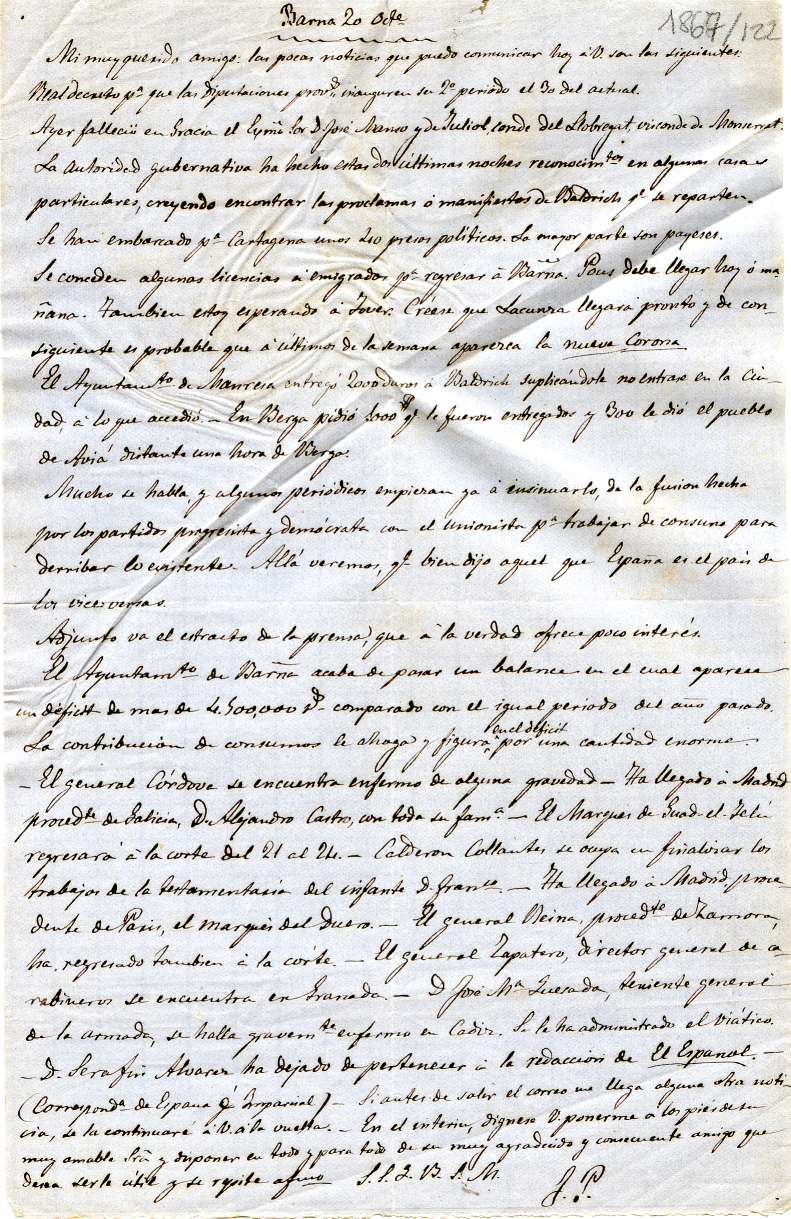 Barna 20 Octe
1867/122
Mi muy querido amigo: las pocas noticias que puedo comunicar hoy á V. son las siguientes.
Real decreto pa. que las diputaciones provs. inauguren su 2º periodo el 30 del actual.
Ayer falleció en Gracia el Exmo Sor D. José Manso y de Juliol, conde del Llobregat, visconde de Monserrat.
La autoridad gubernativa ha hecho estas dos últimas noches reconocimtos en algunas casas
particulares, creyendo encontrar las proclamas ó manifiestos de Baldrich qe. se reparten.
Se han embarcado pa. Cartagena unos 210 presos políticos. La mayor parte son payeses.
Se conceden algunas licencias á emigrados pa. regresar á Barña. Pous debe llegar hoy ó ma-
ñana. Tambien estoy esperando á Tover. Créese que Lacunza llegará pronto y de con-
siguiente es probable que á últimos de la semana aparezca la nueva Corona
El Ayuntamto de Manresa entregó 2000 duros á Baldrich suplicándole no entrase en la Ciu-
dad, á lo que accedió. — En Berga pidió qe. le fueron entregados y 300 le dió el pueblo
de Aviá distante una hora de Berga.
Mucho se habla y algunos periódicos empiezan ya á insinuarlo, de la fusion hecha
por los partidos progresista y demócrata con el unionista pa. trabajar de consuno para
derribar lo existente. Allá veremos, qe. bien dijo aquel que España es el país de
los viceversas.
Adjunto va el estracto de la prensa, que á la verdad ofrece poco interés.
El Ayuntamto de Barña acaba de pasar un balance en el cual aparece
un déficit de mas de 4.500,000 rs. comparado con el igual periodo del año pasado.
La contribucion de consumos le ahoga y figura en el déficit por una cantidad enorme.
— El general Córdova se encuentra enfermo de alguna gravedad — Ha llegado á Madrid
procedte de Galicia, D. Alejandro Castro, con toda su fama. — El Marques de Guad-el-Jelú
regresará á la corte del 21 al 24. — Calderon Collantes se ocupa en finalizar los
trabajos de la testamentaria del infante D. Franco. — Ha llegado á Madrid, proce-
dente de Paris, el marqués del Duero. — El general Reina, procedte de Zamora,
ha regresado tambien á la corte. — El general Zapatero, director general de ca-
rabineros se encuentra en Granada. — D. José Ma. Quesada, teniente general
de la armada, se halla gravemte enfermo en Cadiz. Se le ha administrado el Viático.
— D. Serafin Alvarez ha dejado de pertenecer á la redaccion de El Español. —
(Correspona. de España é Imparcial) — Si antes de salir el correo me llega alguna otra noti-
cia, se la continuaré á V. á la vuelta. — En el interin, dígnese V. ponerme á los piés de su
muy amable Sra. y disponer en todo y para todo de su muy agradecido y consecuente amigo que
desea serle útil y se repite afmo S. S. Q. B. S. M.
J. P.